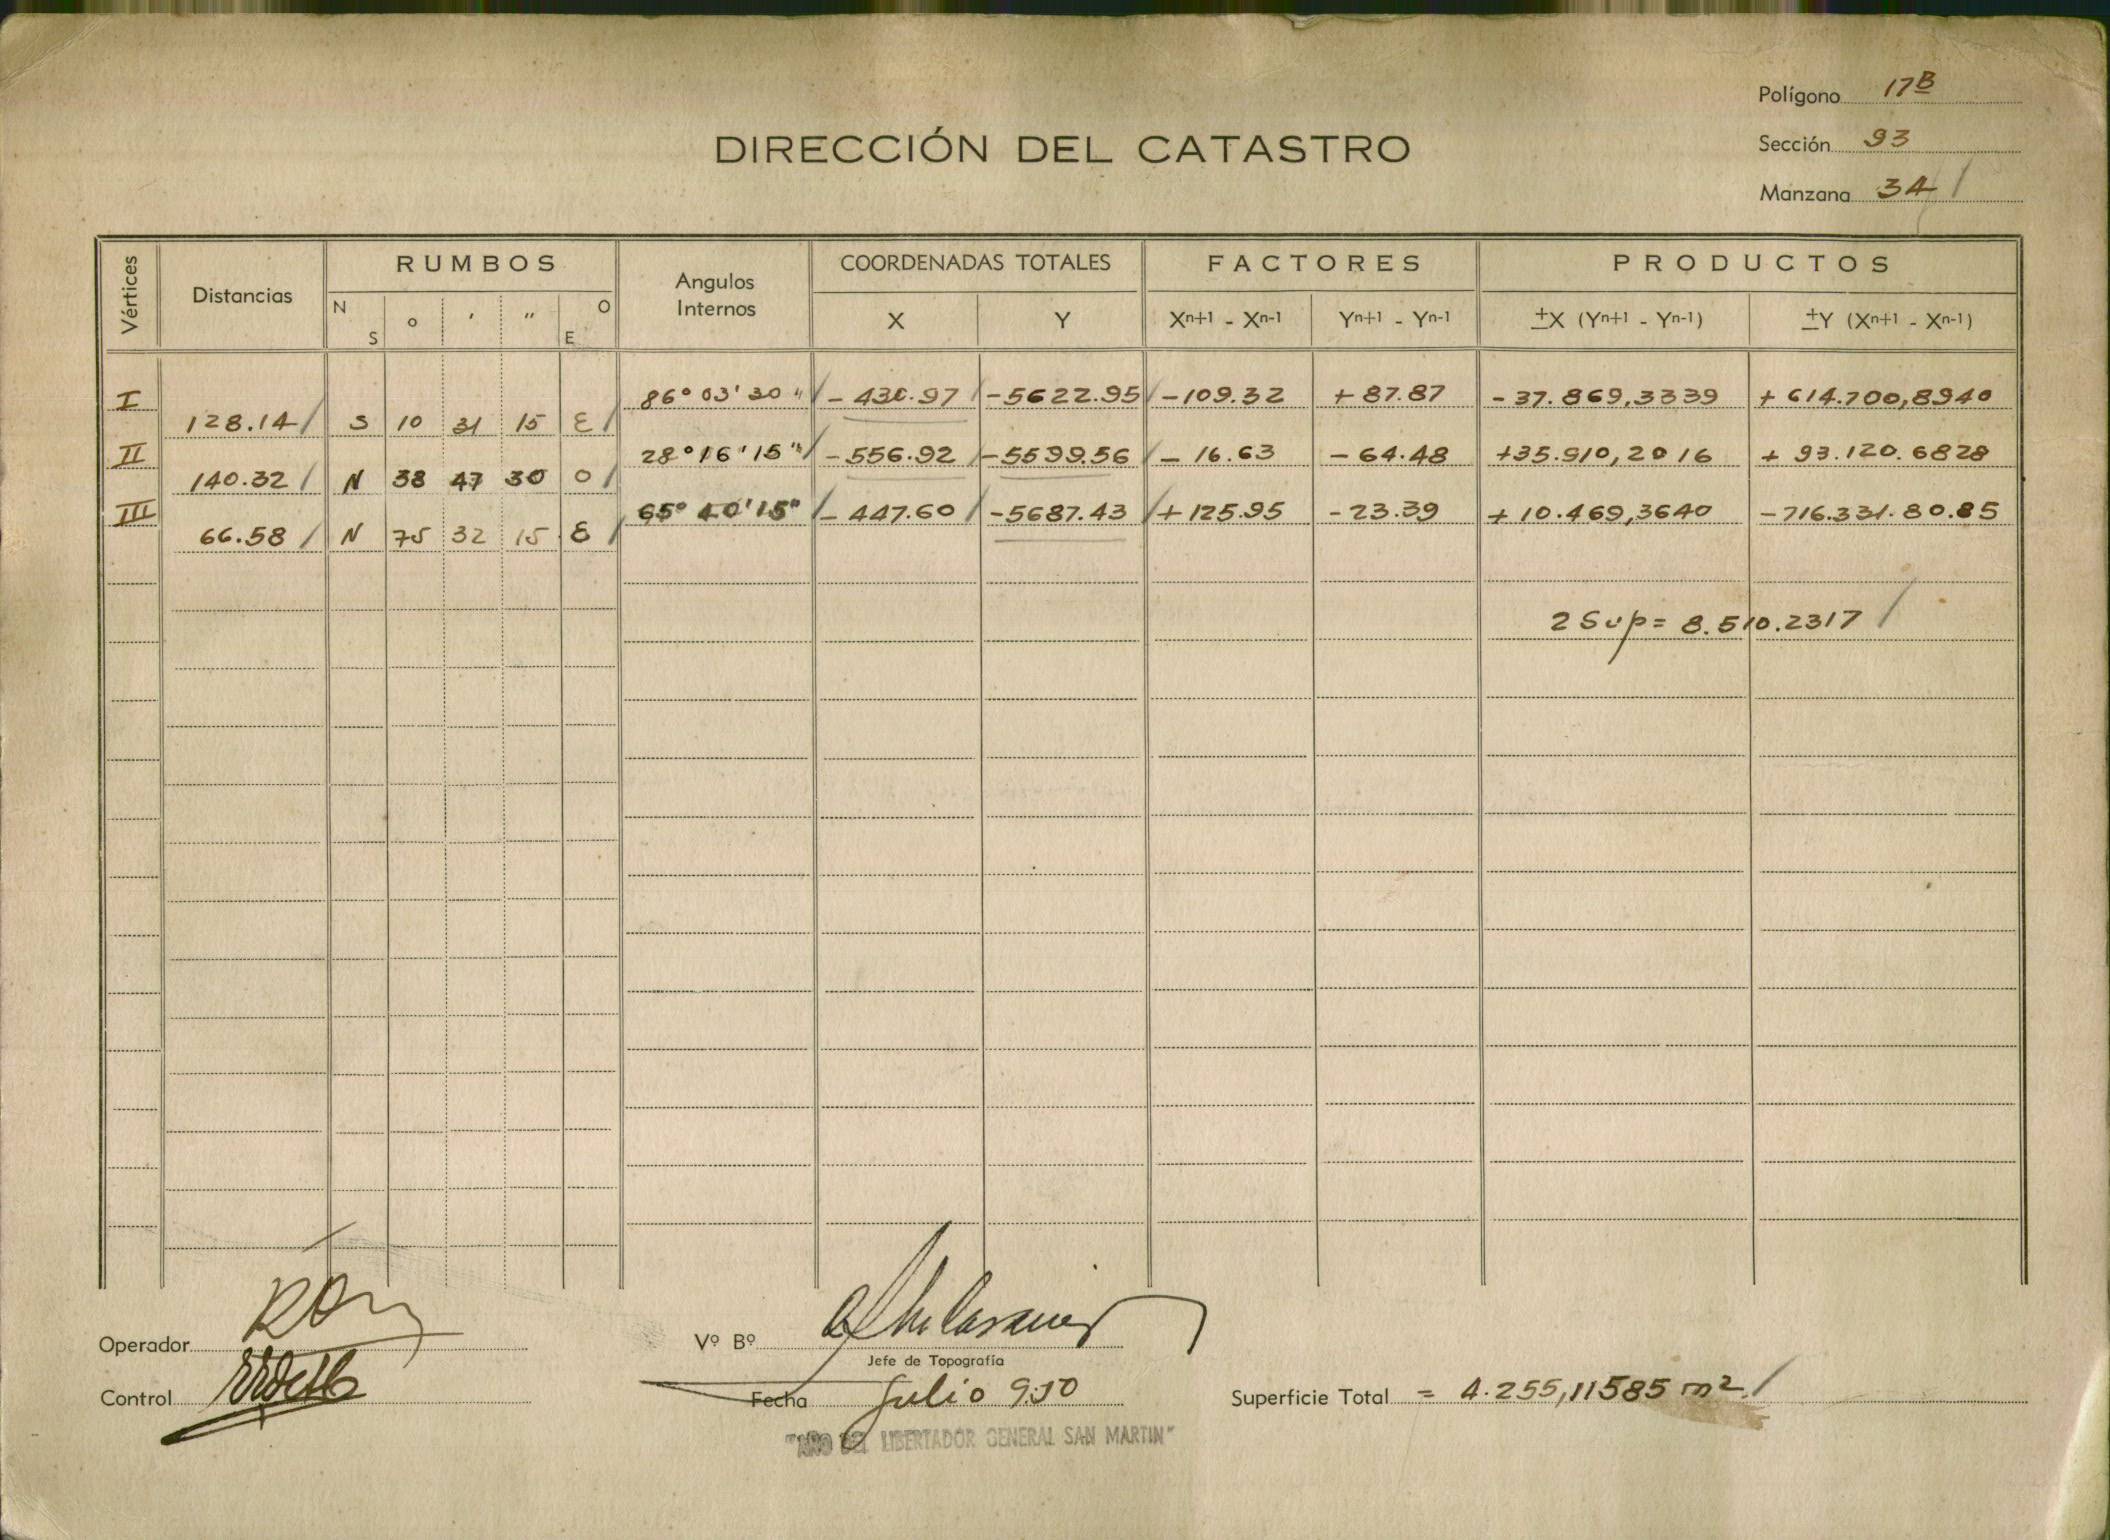 Polígono 17B
DIRECCIÓN DEL CATASTRO
Sección 93
Manzana 34
Vértices Distancias RUMBOS Angulos Internos COORDENADAS TOTALES FACTORES PRODUCTOS
N S o ' " O E X Y Xn+1 - Xn-1 Yn+1 - Yn-1 ±X (Yn+1 - Yn-1) ±Y (Xn+1 - Xn-1)
I 86° 03' 30" -430.97 -5622.95 -109.32 +87.87 -37.869,3339 +614.700,8940
128.14 S 10 31 15 E
II 28° 16' 15" -556.92 -5599.56 -16.63 -64.48 +35.910,2016 +93.120.6828
140.32 N 38 47 30 O
III 65° 40' 15" -447.60 -5687.43 +125.95 -23.39 +10.469,3640 -716.331.80.85
66.58 N 75 32 15 E
2 Sup = 8.510.2317
Operador
Vº Bº
Jefe de Topografía
Control
Fecha Julio 950
Superficie Total = 4.255,11585 m2.
"AÑO DEL LIBERTADOR GENERAL SAN MARTIN"